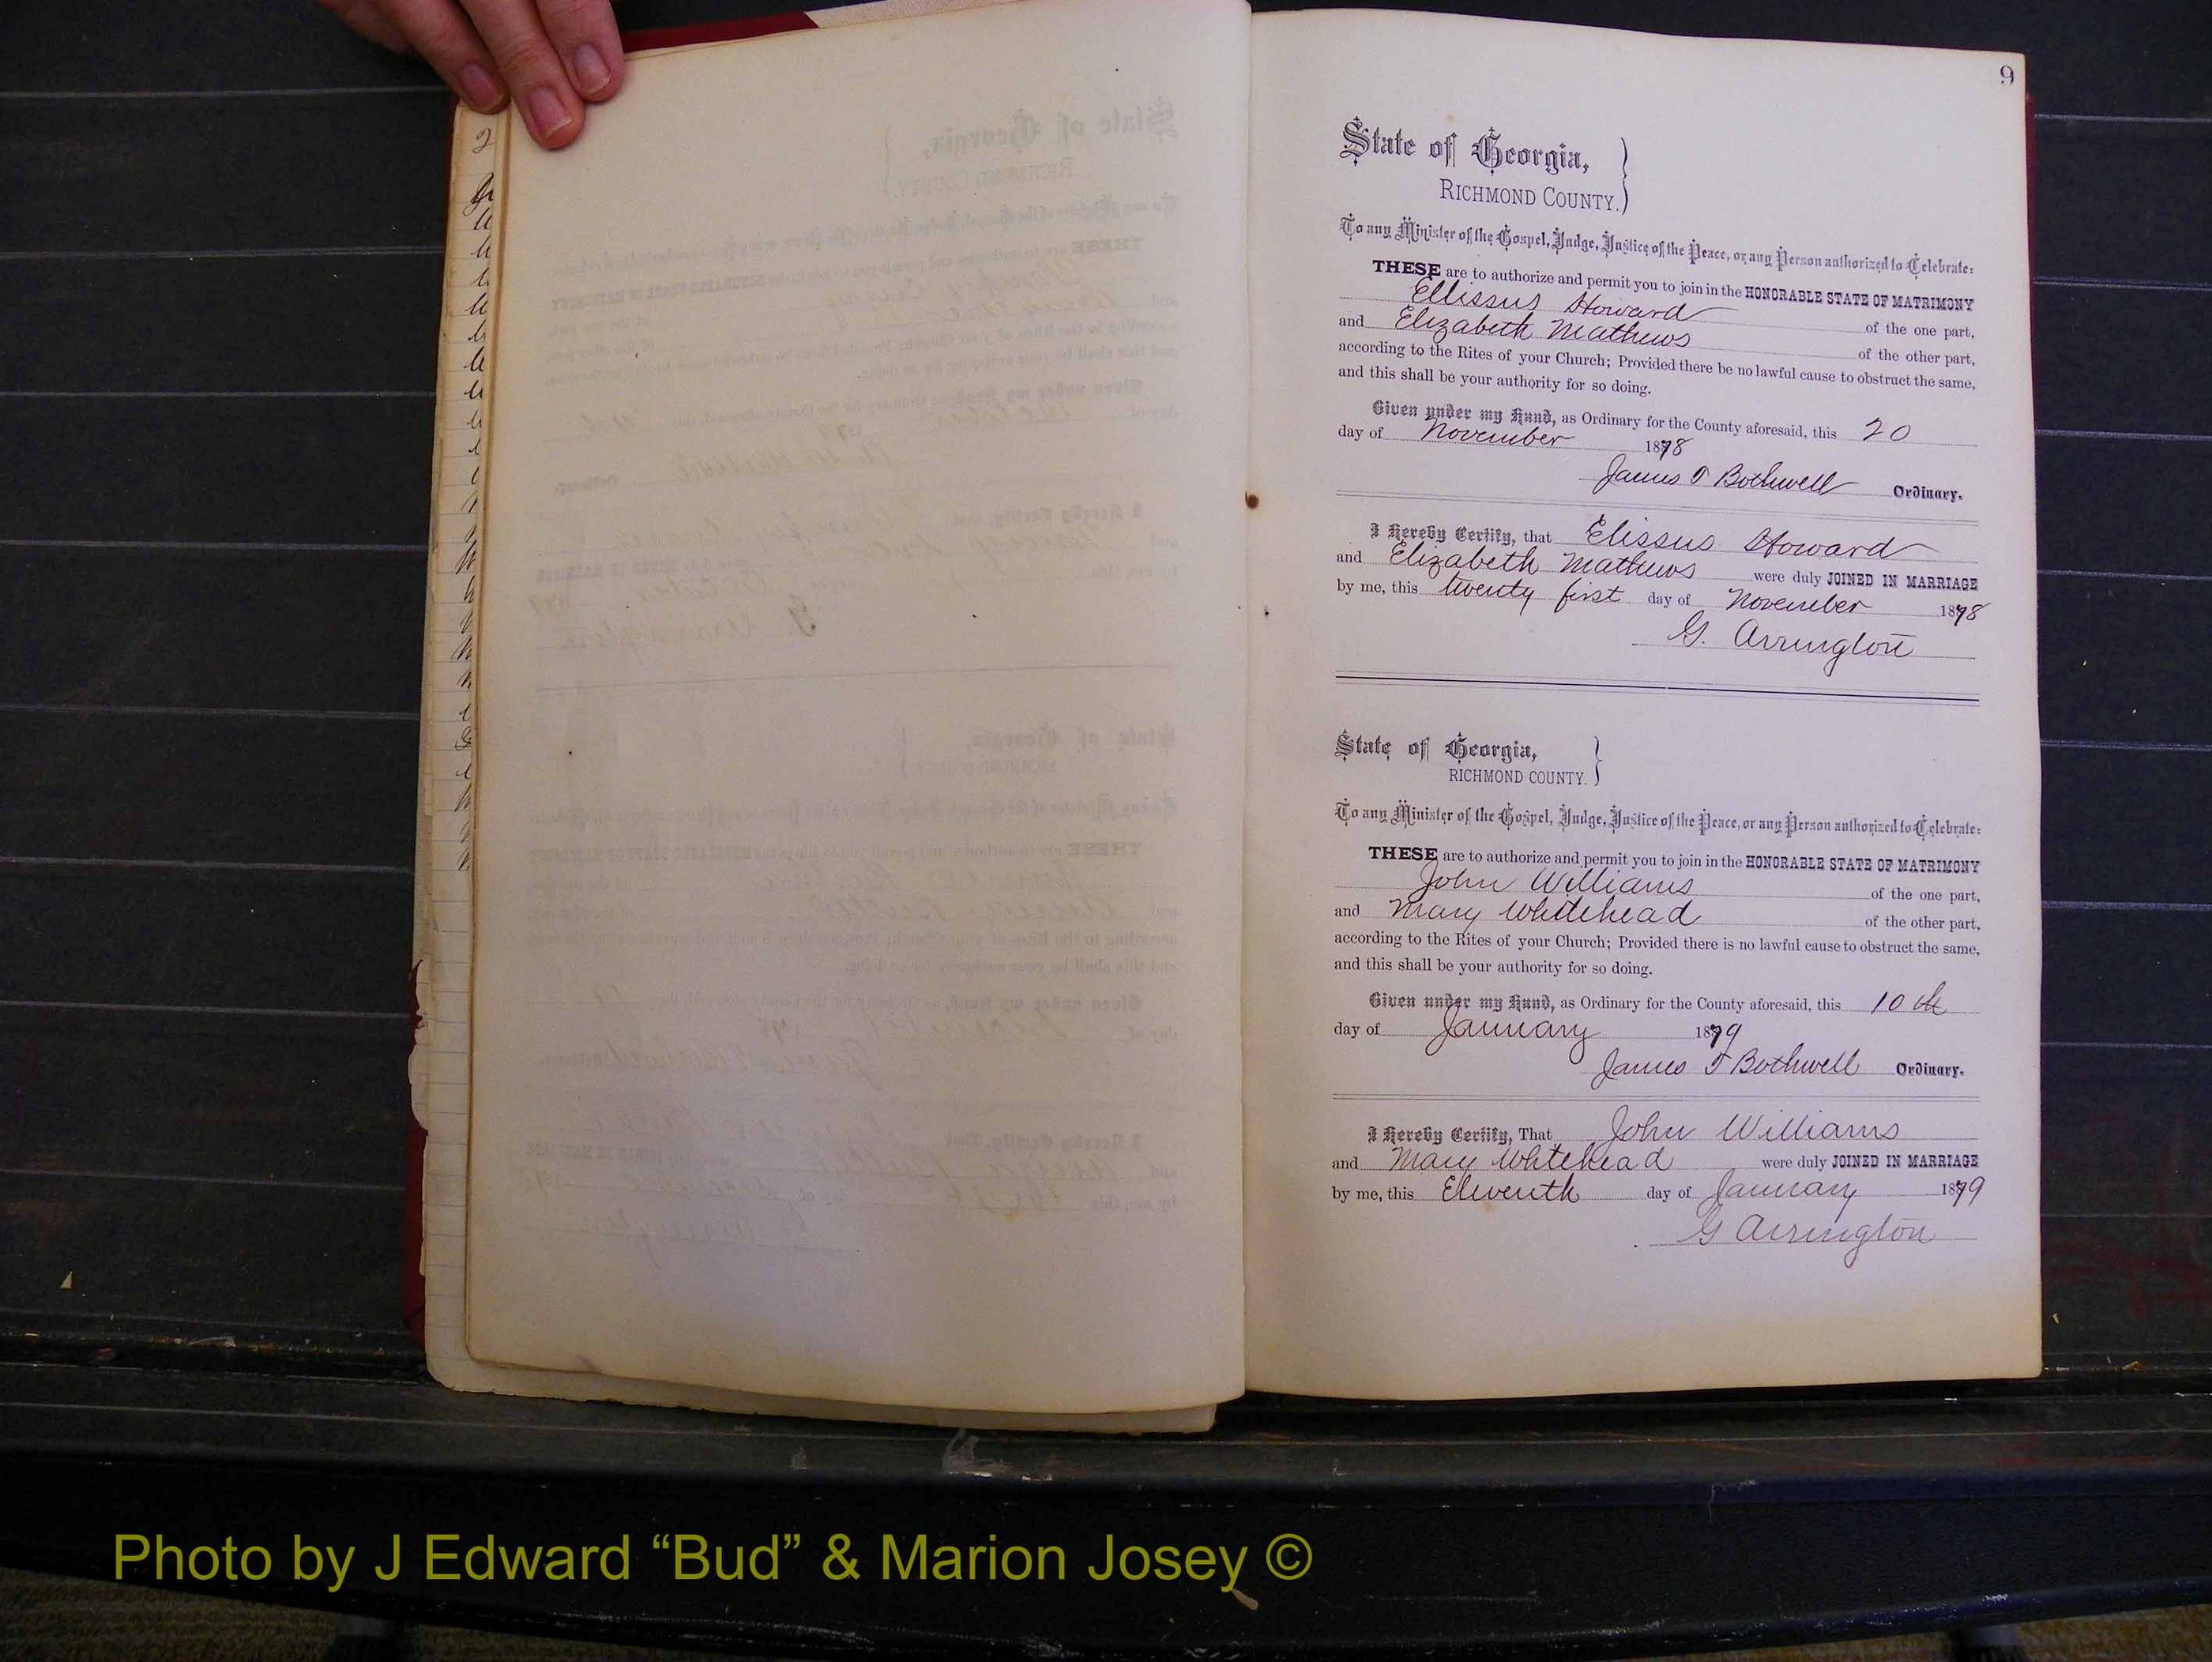 9
State of Georgia,
RICHMOND COUNTY.
To any Minister of the Gospel, Judge, Justice of the Peace, or any Person authorized to Celebrate:
THESE are to authorize and permit you to join in the HONORABLE STATE OF MATRIMONY
Ellissus Howard of the one part,
and Elizabeth Mathews of the other part,
according to the Rites of your Church; Provided there be no lawful cause to obstruct the same,
and this shall be your authority for so doing.
Given under my Hand, as Ordinary for the County aforesaid, this 20
day of November 1878
James T Bothwell Ordinary.
I Hereby Certify, that Elissus Howard
and Elizabeth Mathews were duly JOINED IN MARRIAGE
by me, this twenty first day of November 1878
G. Arrington
State of Georgia,
RICHMOND COUNTY.
To any Minister of the Gospel, Judge, Justice of the Peace, or any Person authorized to Celebrate:
THESE are to authorize and permit you to join in the HONORABLE STATE OF MATRIMONY
John Williams of the one part,
and Mary Whitehead of the other part,
according to the Rites of your Church; Provided there is no lawful cause to obstruct the same,
and this shall be your authority for so doing.
Given under my Hand, as Ordinary for the County aforesaid, this 10th
day of January 1879
James T Bothwell Ordinary.
I Hereby Certify, That John Williams
and Mary Whitehead were duly JOINED IN MARRIAGE
by me, this Eleventh day of January 1879
G Arrington
Photo by J Edward “Bud” & Marion Josey ©